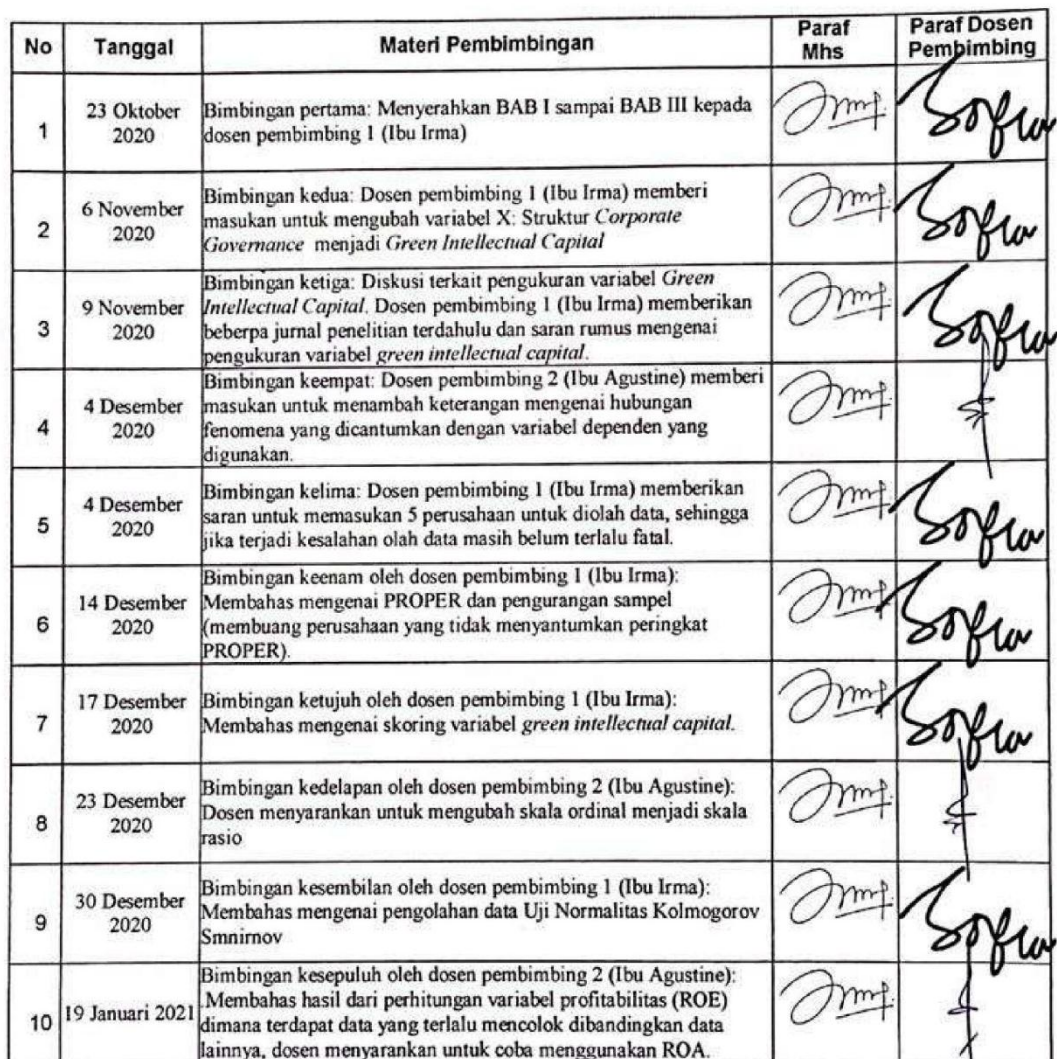 No Tanggal Materi Pembimbingan Paraf Mhs Paraf Dosen Pembimbing
1 23 Oktober 2020
Bimbingan pertama: Menyerahkan BAB I sampai BAB III kepada
dosen pembimbing 1 (Ibu Irma)
2 6 November 2020
Bimbingan kedua: Dosen pembimbing 1 (Ibu Irma) memberi
masukan untuk mengubah variabel X: Struktur Corporate
Governance menjadi Green Intellectual Capital
3 9 November 2020
Bimbingan ketiga: Diskusi terkait pengukuran variabel Green
Intellectual Capital. Dosen pembimbing 1 (Ibu Irma) memberikan
beberpa jurnal penelitian terdahulu dan saran rumus mengenai
pengukuran variabel green intellectual capital.
4 4 Desember 2020
Bimbingan keempat: Dosen pembimbing 2 (Ibu Agustine) memberi
masukan untuk menambah keterangan mengenai hubungan
fenomena yang dicantumkan dengan variabel dependen yang
digunakan.
5 4 Desember 2020
Bimbingan kelima: Dosen pembimbing 1 (Ibu Irma) memberikan
saran untuk memasukan 5 perusahaan untuk diolah data, sehingga
jika terjadi kesalahan olah data masih belum terlalu fatal.
6 14 Desember 2020
Bimbingan keenam oleh dosen pembimbing 1 (Ibu Irma):
Membahas mengenai PROPER dan pengurangan sampel
(membuang perusahaan yang tidak menyantumkan peringkat
PROPER).
7 17 Desember 2020
Bimbingan ketujuh oleh dosen pembimbing 1 (Ibu Irma):
Membahas mengenai skoring variabel green intellectual capital.
8 23 Desember 2020
Bimbingan kedelapan oleh dosen pembimbing 2 (Ibu Agustine):
Dosen menyarankan untuk mengubah skala ordinal menjadi skala
rasio
9 30 Desember 2020
Bimbingan kesembilan oleh dosen pembimbing 1 (Ibu Irma):
Membahas mengenai pengolahan data Uji Normalitas Kolmogorov
Smnirnov
10 19 Januari 2021
Bimbingan kesepuluh oleh dosen pembimbing 2 (Ibu Agustine):
Membahas hasil dari perhitungan variabel profitabilitas (ROE)
dimana terdapat data yang terlalu mencolok dibandingkan data
lainnya, dosen menyarankan untuk coba menggunakan ROA.